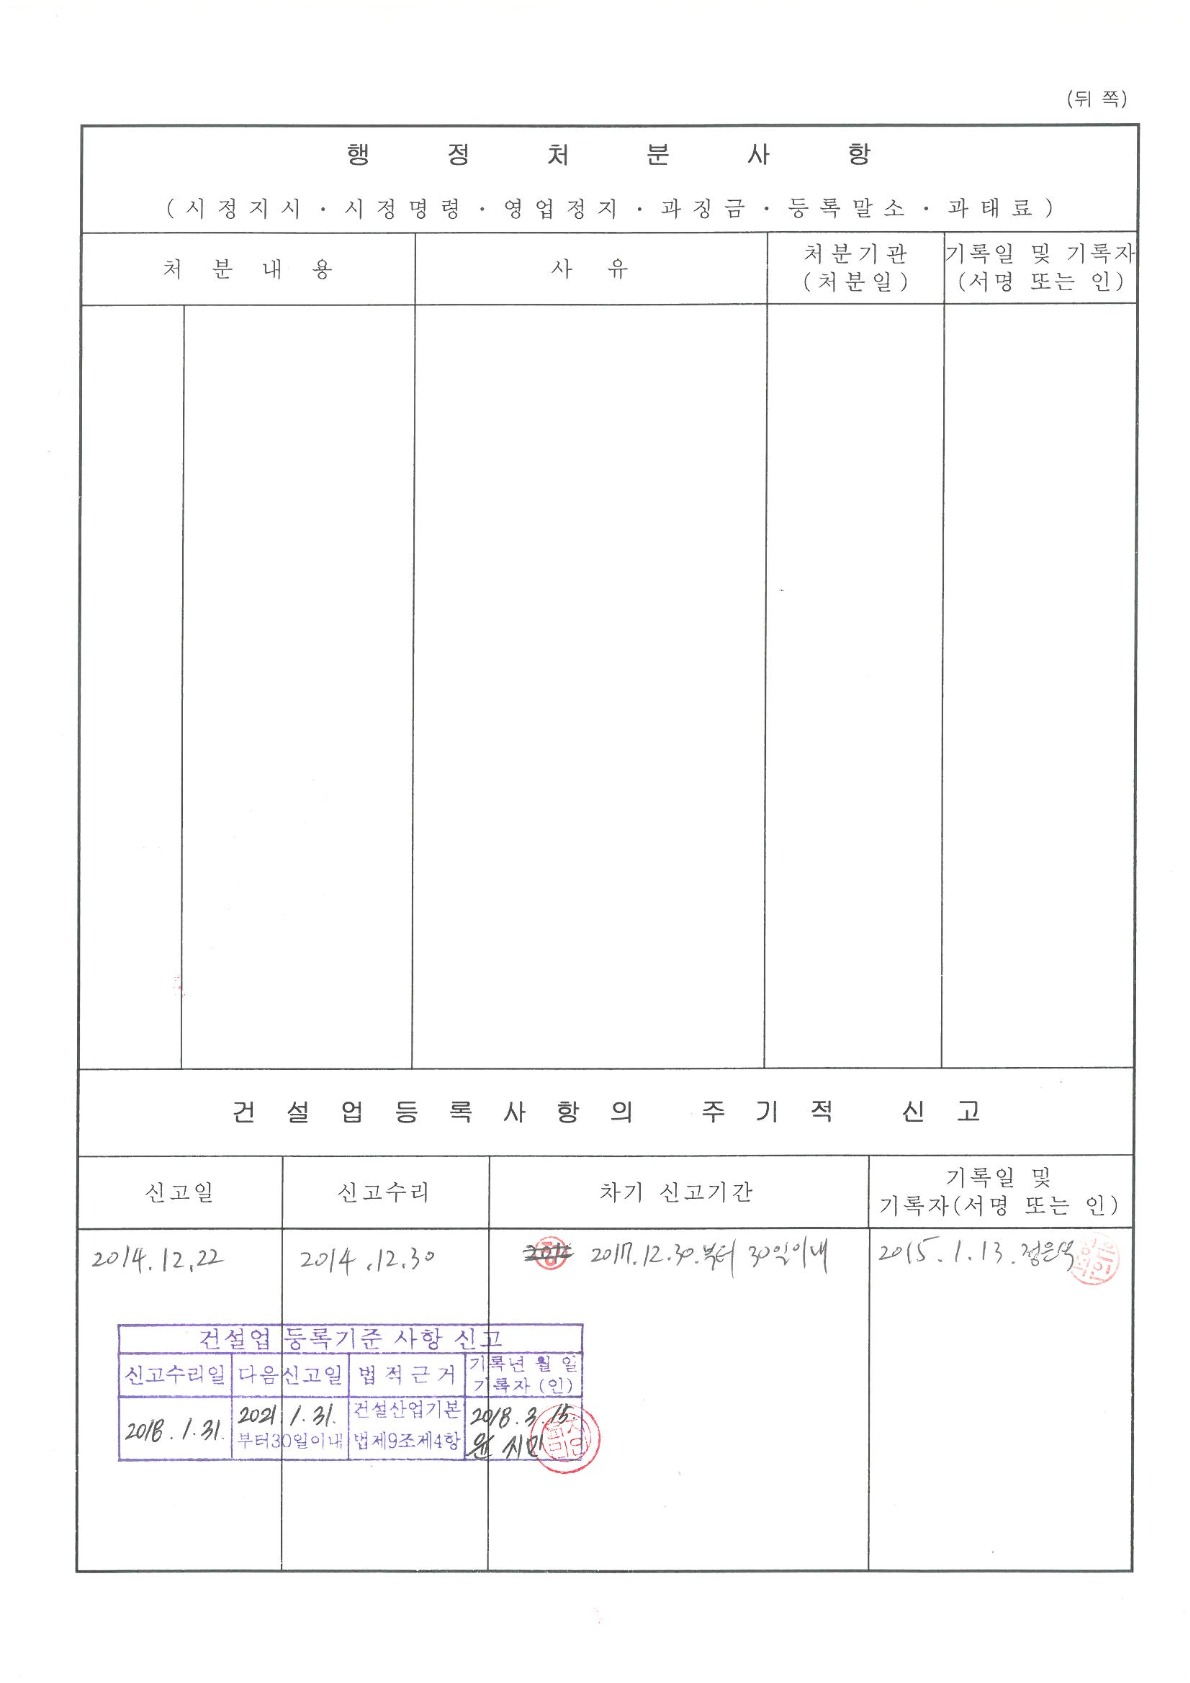 (뒤 쪽)
행 정 처 분 사 항
(시정지시 · 시정명령 · 영업정지 · 과징금 · 등록말소 · 과태료)
처 분 내 용
사 유
처분기관
(처분일)
기록일 및 기록자
(서명 또는 인)
건 설 업 등 록 사 항 의 주 기 적 신 고
신고일
신고수리
차기 신고기간
기록일 및
기록자(서명 또는 인)
2014.12.22
2014.12.30
2017.12.30.부터 30일이내
2015.1.13.
건설업 등록기준 사항 신고
신고수리일
다음신고일
법적근거
기록년 월 일
기록자(인)
2018.1.31.
2021 1.31.
부터30일이내
건설산업기본
법제9조제4항
2018.3.15.
윤 시민